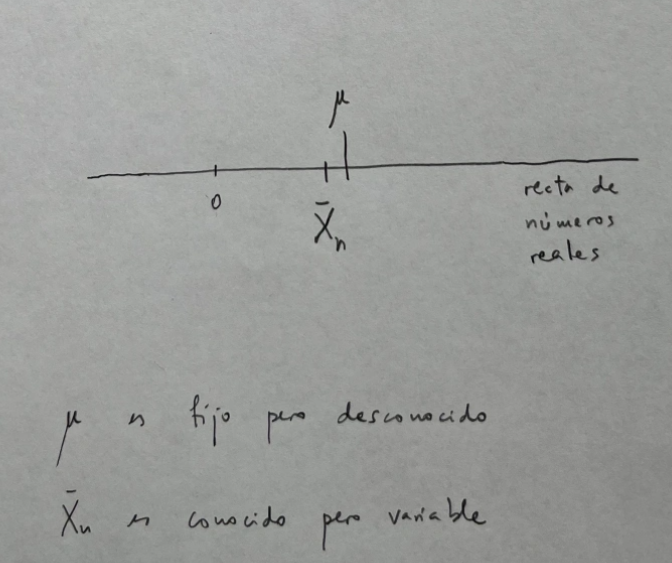 μ
0
X̄n
recta de
números
reales
μ es fijo pero desconocido
X̄n es conocido pero variable